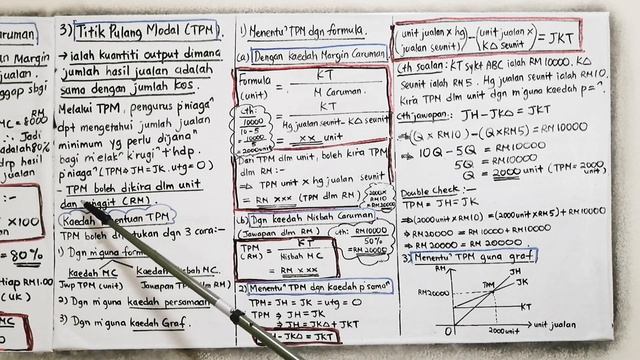 aruman.
an Margin
jualan.
ggap sbgi
RM
MC = 8000
∴ Jadi
adalah 80%
drp hasil
jualan
x 100
= 80%
etiap RM1.00
(UK)
MC
3) Titik Pulang Modal (TPM)
→ ialah kuantiti output dimana
jumlah hasil jualan adalah
sama dengan jumlah kos.
Melalui TPM, pengurus p'niaga
dpt mengetahui jumlah jualan
minimum yg perlu dijana
bagi m'elak k'rugi thdp.
p'niaga (TPM ⇒ JH = JK. utg = 0)
- TPM boleh dikira dlm unit
dan ringgit (RM).
Kaedah Penentuan TPM
TPM boleh ditentukan dgn 3 cara:-
1) Dgn m'guna formula
Kaedah MC Kaedah Nisbah MC.
Jwp TPM (unit) Jawapan TPM dlm (RM)
2) Dgn m'guna kaedah persamaan
3) Dgn m'guna kaedah Graf.
1) Menentu TPM dgn formula.
(a) Dengan Kaedah Margin Caruman
Formula = KT
(unit) M Caruman.
Cth: = KT
10000 Hg jualan seunit - K∆ seunit
10-5
= 10000
5
= 2000unit
= xx unit
Dari TPM dlm unit, boleh kira TPM
dlm RM:-
⇒ TPM unit x hg jualan seunit
= RM xxx (TPM dlm RM)
2000 x
RM10
= RM20000
(b) Dgn Kaedah Nisbah Caruman
(Jawapan dlm RM)
TPM = KT
(RM) Nisbah MC
= RM xxx
Cth: RM10000
50%
= RM20000
2) Menentu TPM dgn kaedah p'sama
TPM = JH = JK = utg = 0
TPM ⇒ JH = JK
⇒ JH = JK∆ + JKT
JH - JK∆ = JKT
(unit jualan x hg jualan seunit) - (unit jualan x K∆ seunit) = JKT
Cth soalan: KT sykt ABC ialah RM 10000. K∆
Seunit ialah RM 5. Hg jualan seunit ialah RM10.
Kira TPM dlm unit dgn m'guna kaedah p=
Cth jawapan: JH - JK∆ = JKT
⇒ (Q x RM10) - (Q x RM5) = RM10000
⇒ 10Q - 5Q = RM10000
5Q = RM10000
Q = 2000 unit (TPM = 2000 unit)
Double Check:-
TPM = JH = JK
⇒ (2000 unit x RM10) = (2000 unit x RM5) + RM10000
⇒ RM20000 = RM10000 + RM10000
⇒ RM20000 = RM20000.
3) Menentu TPM guna graf
RM
JH
JK
TPM
RM20000
KT
0
2000unit
unit jualan